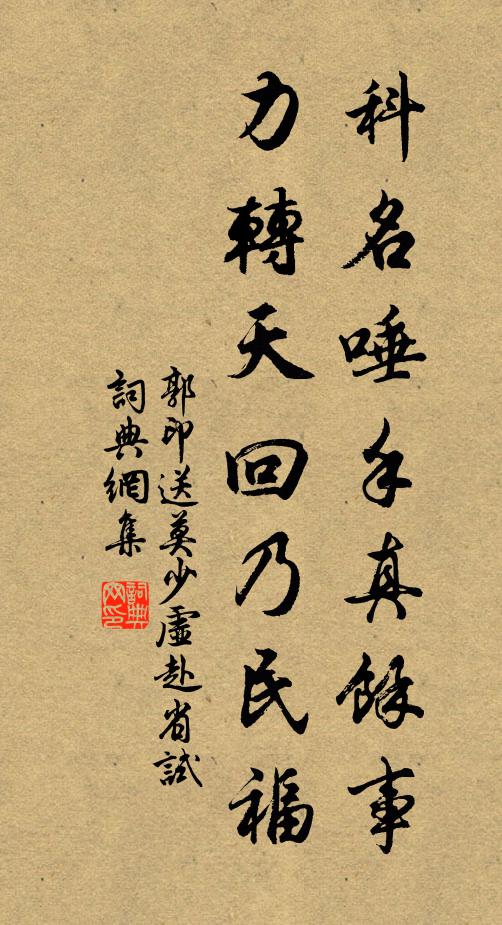 科名唾手真餘事
力轉天回乃民福
郭印送莫少虛赴省試
詞典網集
詞典網印